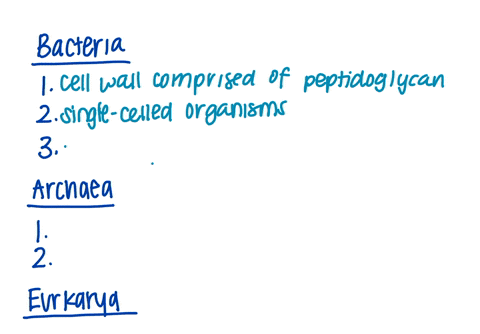 Bacteria
1. cell wall comprised of peptidoglycan
2. single-celled organisms
3.
Archaea
1.
2.
Eurkarya